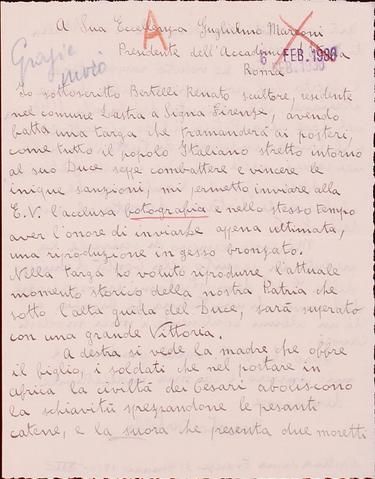 A Sua Eccellenza Guglielmo Marconi
A
Presidente dell'Accademia d'Italia
6 FEB. 1936
Roma
Grazie
invio
Io sottoscritto Bertelli Renato scultore, residente
nel comune Lastra a Signa Firenze, avendo
fatta una targa che tramanderà ai posteri,
come tutto il popolo Italiano stretto intorno
al suo Duce seppe combattere e vincere le
inique sanzioni, mi permetto inviare alla
E.V. l'acclusa fotografia e nello stesso tempo
aver l'onore di inviarLe apena ultimata,
una riproduzione in gesso bronzato.
Nella targa ho voluto riprodurre l'attuale
momento storico della nostra Patria che
sotto l'alta guida del Duce, sarà superato
con una grande Vittoria.
A destra si vede la madre che offre
il figlio, i soldati che nel portare in
africa la civiltà dei Cesari aboliscono
la schiavitù spezzandone le pesanti
catene, e la suora che presenta due moretti